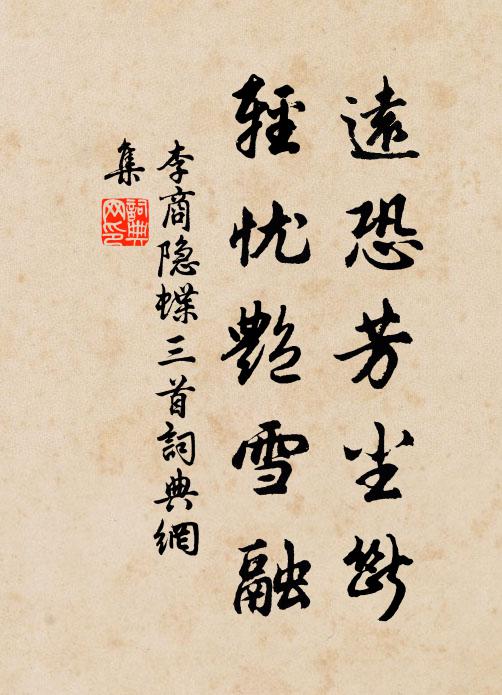 遠恐芳尘斷
輕忧艷雪融
李商隐蝶三首詞典網
集
詞典
网印